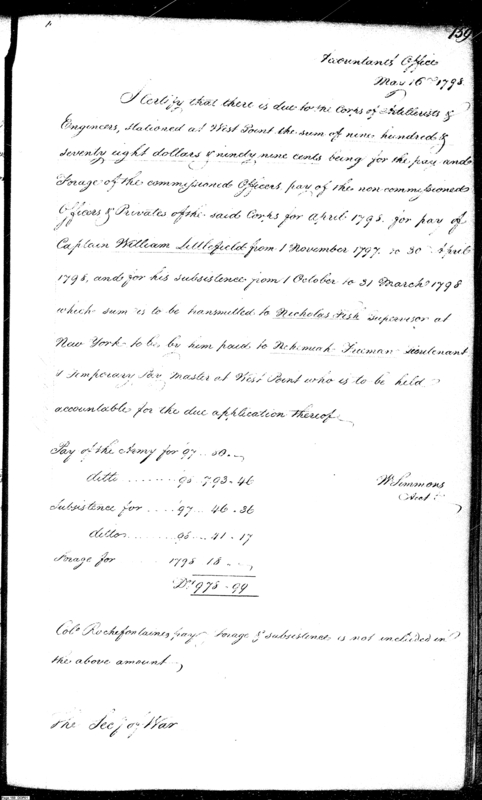 159
Accountants Office
May 16th 1798
I certify that there is due to the Corps of Artillerists &
Engineers, stationed at West Point the sum of nine hundred &
seventy eight dollars & ninety nine cents being for the pay and
Forage of the commissioned Officers, pay of the non commissioned
Officers & Privates of the said Corps for April 1798. for pay of
Captain William Littlefield from 1 November 1797. to 30 April
1798, and for his subsistence from 1 October to 31 March 1798
which sum is to be transmitted to Nicholas Fish Supervisor at
New York to be by him paid to Nehemiah Freeman Lieutenant
& Temporary Pay Master at West Point who is to be held
accountable for the due application thereof
Pay of the Army for 97 .. 
ditto ......... 98 793.46
Subsistence for .... 97 .. 46.36
ditto ....... 98 .. 41.17
Forage for 1798 18
Drs 978.99
W Simmons
Acct
Colo Rochefontaines pay forage & subsistence is not included in
the above amount
The Secy of War